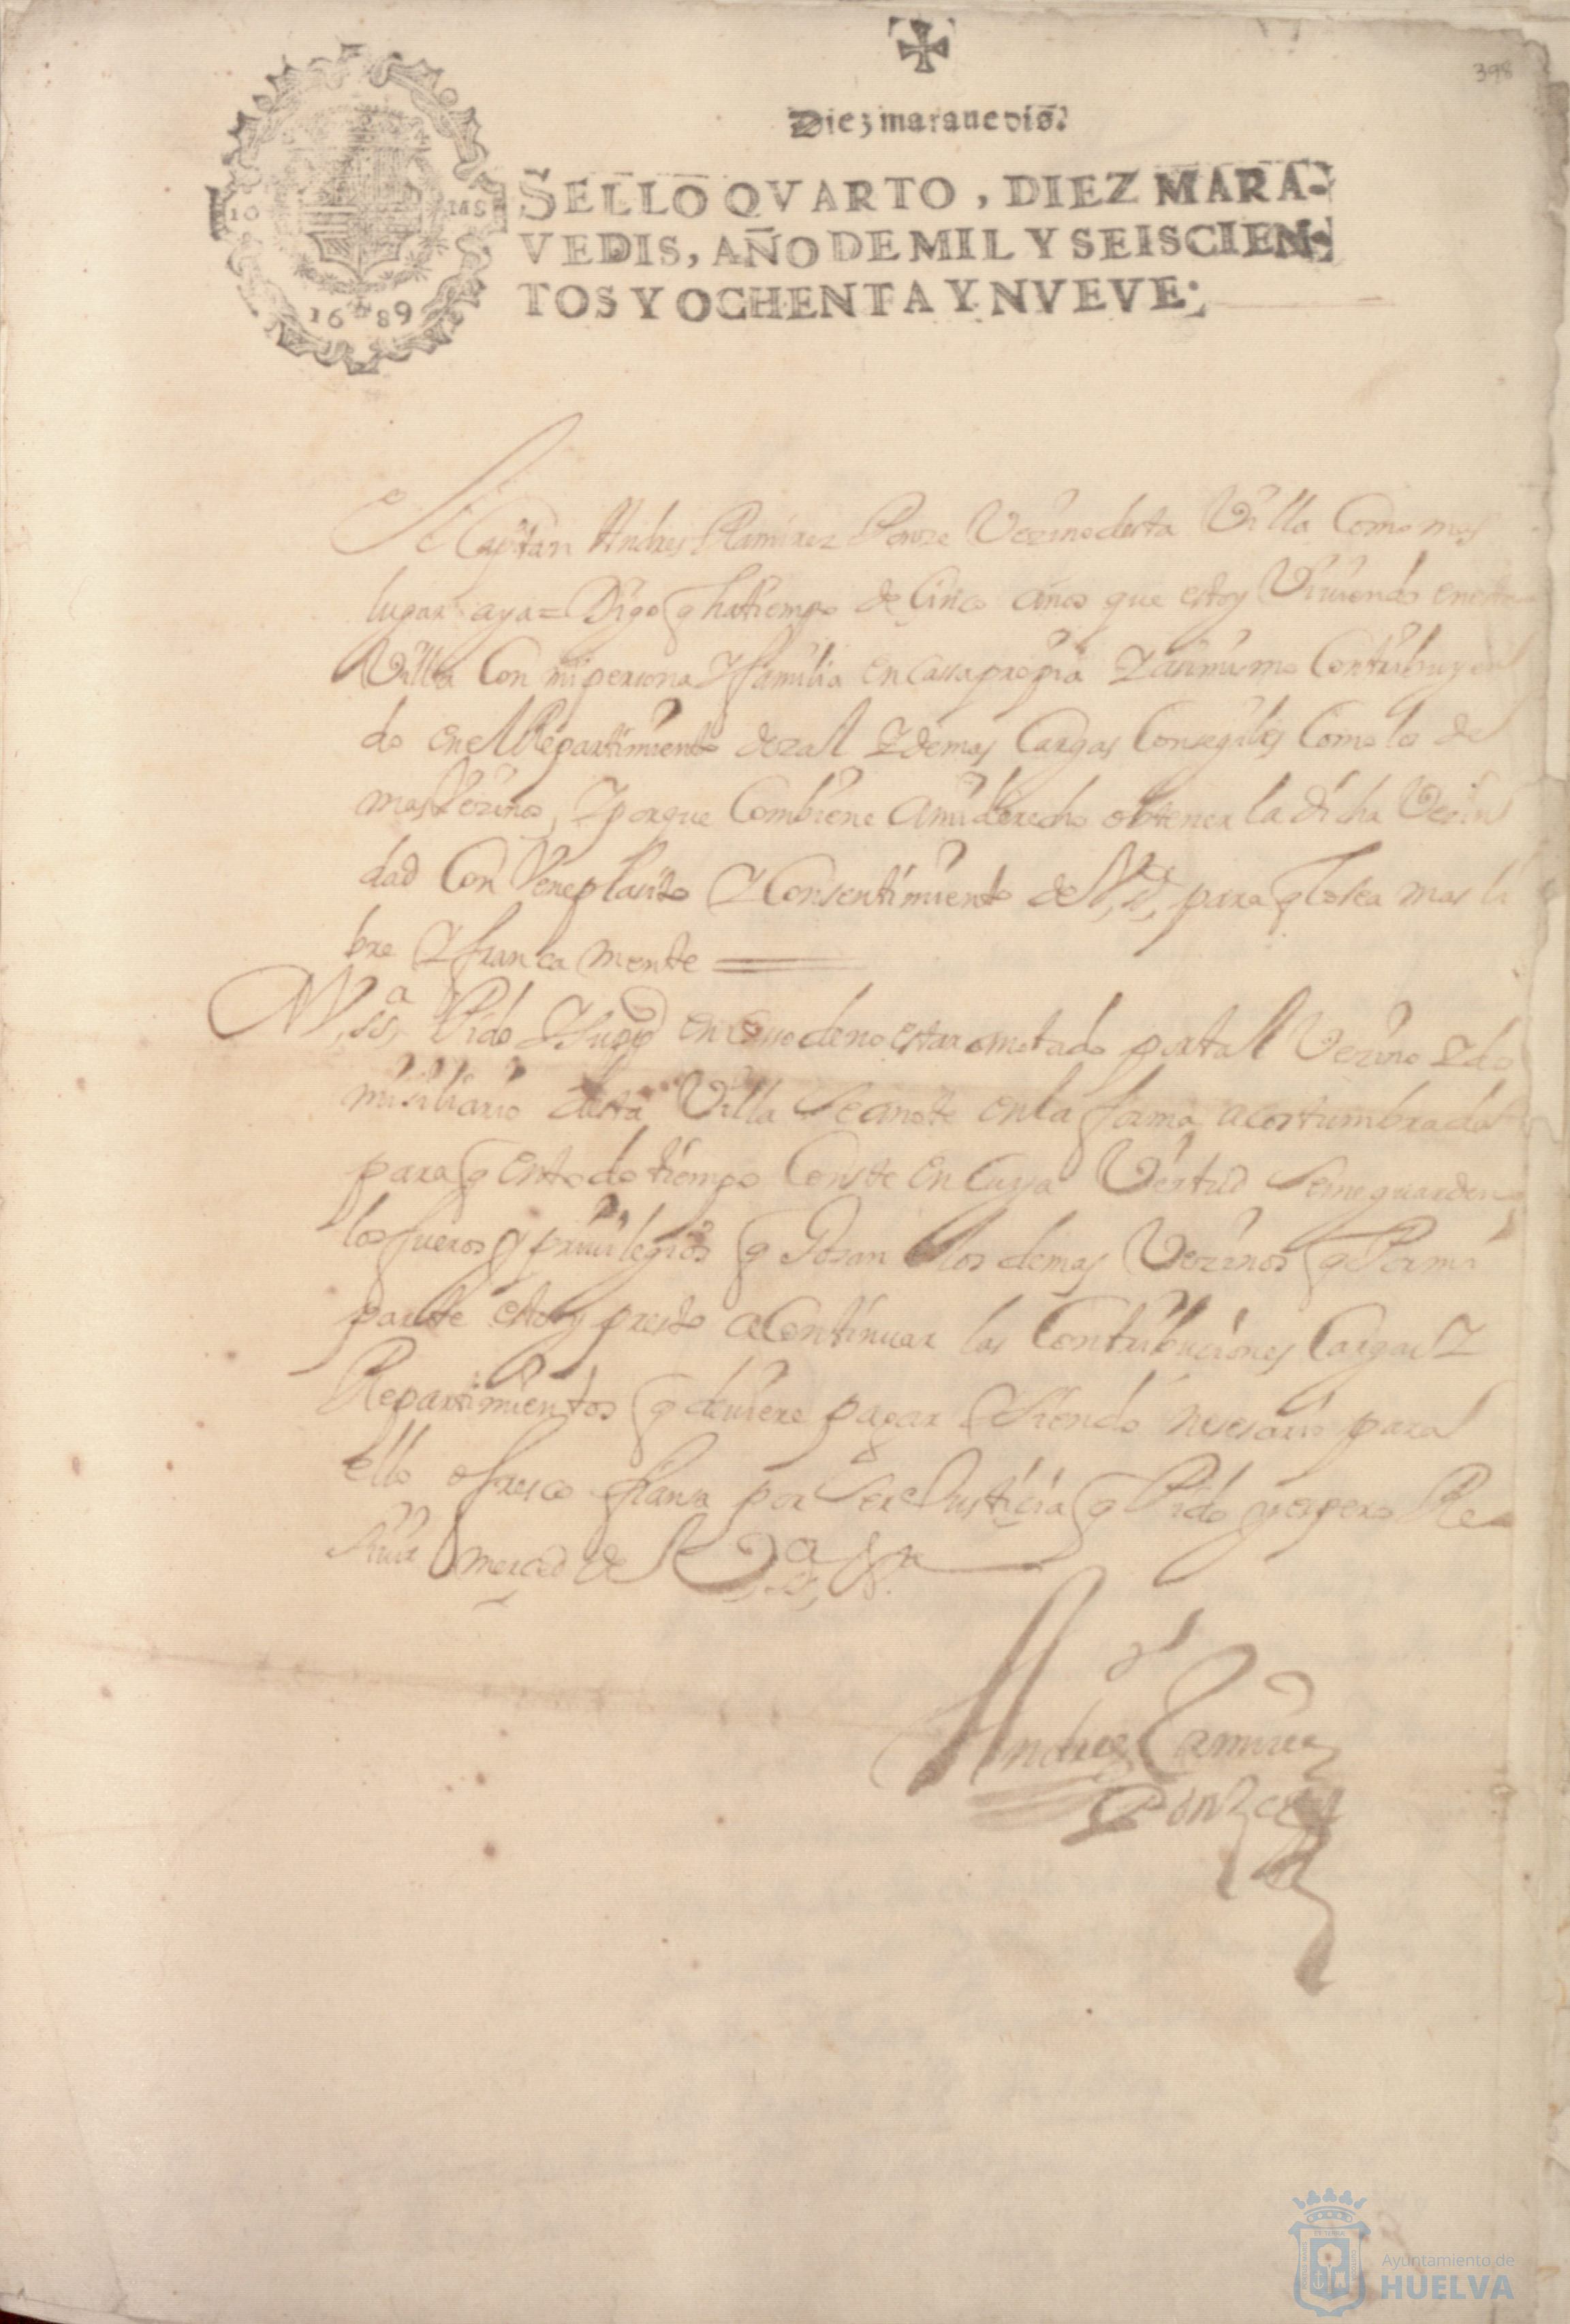 398
Diez marauedis.
SELLO QVARTO, DIEZ MARA-
VEDIS, AÑO DE MIL Y SEISCIEN-
TOS Y OCHENTA Y NVEVE.
1689
El Capitan Andres Ramirez Ponze Vezino desta Villa Como mas
lugar aya = Digo q ha tiempo de Cinco años que estoy Viuiendo en esta
Villa Con mi persona Y familia en Cassa propia Y asimismo Contribuyen
do en el Repartimiento de Y demas Cargas Como los de
mas Vezinos, Y porque Combiene a mi derecho obtener la dicha Vezin
dad Con Veneplasito Y Consentimiento de V, ss, para q lo sea mas li
bre Y franca mente
A V, ssa, Pido Y Supco en Caso de no estar anotado por tal Vezino Y do
misiliario desta Villa Se anote en la forma acostumbrada
para q en todo tiempo Conste en Cuya Vertud Se me guarden
los fueros y priuilegios q Gosan los demas Vezinos q Por mi
parte estoy presto a Continuar las Contribuciones Cargas Y
Repartimientos q deuiere pagar Y Siendo nesesario para
ello ofresco fiansa por Ser Justicia q Pido y espero Re
siuir merced de V, ssa,
Andres Ramirez
Ponze
Ayuntamiento de
HUELVA